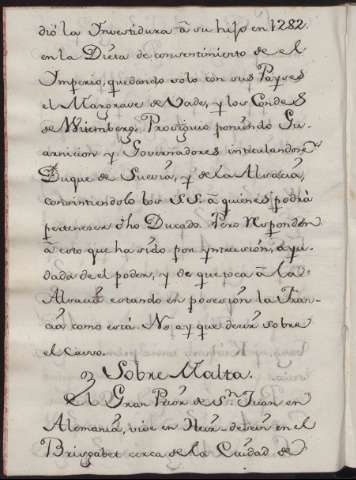 dió la Investidura â su hijo en 1282.
en la Dieta de consentimiento de el
Imperio, quedando solo con sus Payses
el Margrave de Vade, y los Condes
de Witemberg. Prosiguio poniendo Gu-
arnicion y Governadores intitulandose
Duque de Suevia, y de la Alsacia,
consintiendolo los S.S. â quienes podrà
pertenecer dho Ducado. Pero Responden
â esto que ha sido por intrusion, ayu-
dada de el poder, y de que toca â la
Alsacia estando en posecion la Fran-
cia como està. No ay que decir sobre
el Cuervo.
Sobre Malta.
El Gran Prior de Sn Juan en
Alemania, vive en Heitersheim en el
Brisgabet cerca de la Ciudad de